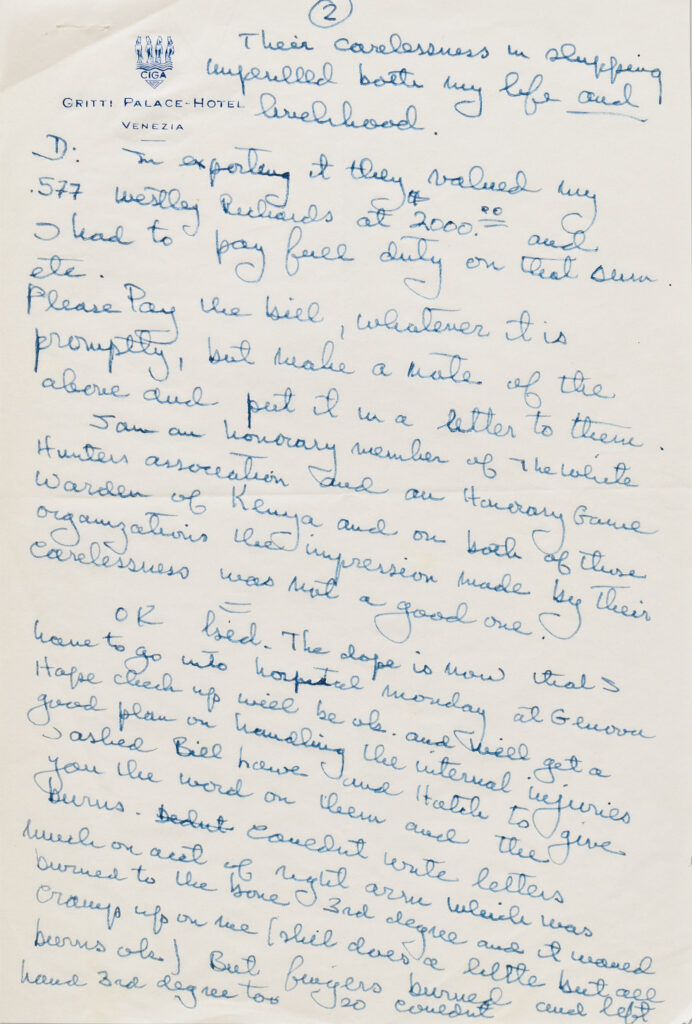 (2)
CIGA
GRITTI PALACE-HOTEL
VENEZIA
Their carelessness in shipping
imperilled both my life and
livelihood.
D: In exporting it they valued my
.577 Westley Richards at $2000.00 and
I had to pay full duty on that sum
etc.
Please Pay the bill, whatever it is
promptly, but make a note of the
above and put it in a letter to them.
I am an honorary member of The White
Hunters association and an Honorary Game
Warden of Kenya and on both of those
organizations the impression made by their
carelessness was not a good one.
OK bied. The dope is now that I
have to go into hospital monday at Genova
Hope check up will be ok. and will get a
good plan on handling the internal injuries
I asked Bill Lowe and Hotch to give
you the word on them and the
burns. Couldnt write letters
much on acct of right arm which was
burned to the bone 3rd degree and it would
cramp up on me (still does a little but all
burns ok) But fingers burned and left
hand 3rd degree too so couldnt